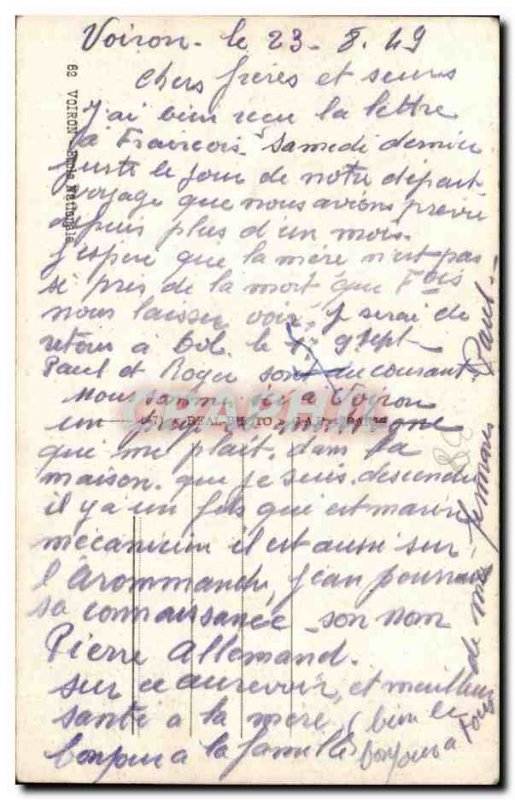 Voiron - le 23-8.49
Chers frères et seurs
J'ai bien recu la lettre
a Francois Samedi dernier
juste le jour de notre départ
voyage que nous avions prévu
depuis plus d'un mois.
J'espère que la mère n'est pas
si près de la mort que Fois
nous laisser voir. Je serai de
retour a le 9 sept
Paul et Roger sont au courant.
Nous sommes ici a Voiron
un
qui me plait. dans la
maison. que je suis descendu
il y a un fils qui est marin
mécanicien il est aussi sur
l'Arommanche, Jean pourrait
sa connaissance - son nom
Pierre Allemand.
sur ce aurevoir, et meilleur
santé a la mère, (bien le
bonjour a la famille bonjour a Tous
de ma Paul.
62 VOIRON - Ecole Nationale
REAL-PHOTO